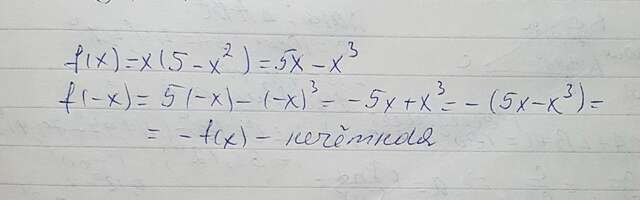 f(x)=x(5-x²)=5x-x³
f(-x)=5(-x)-(-x)³=-5x+x³=-(5x-x³)=
=-f(x)-нечётная